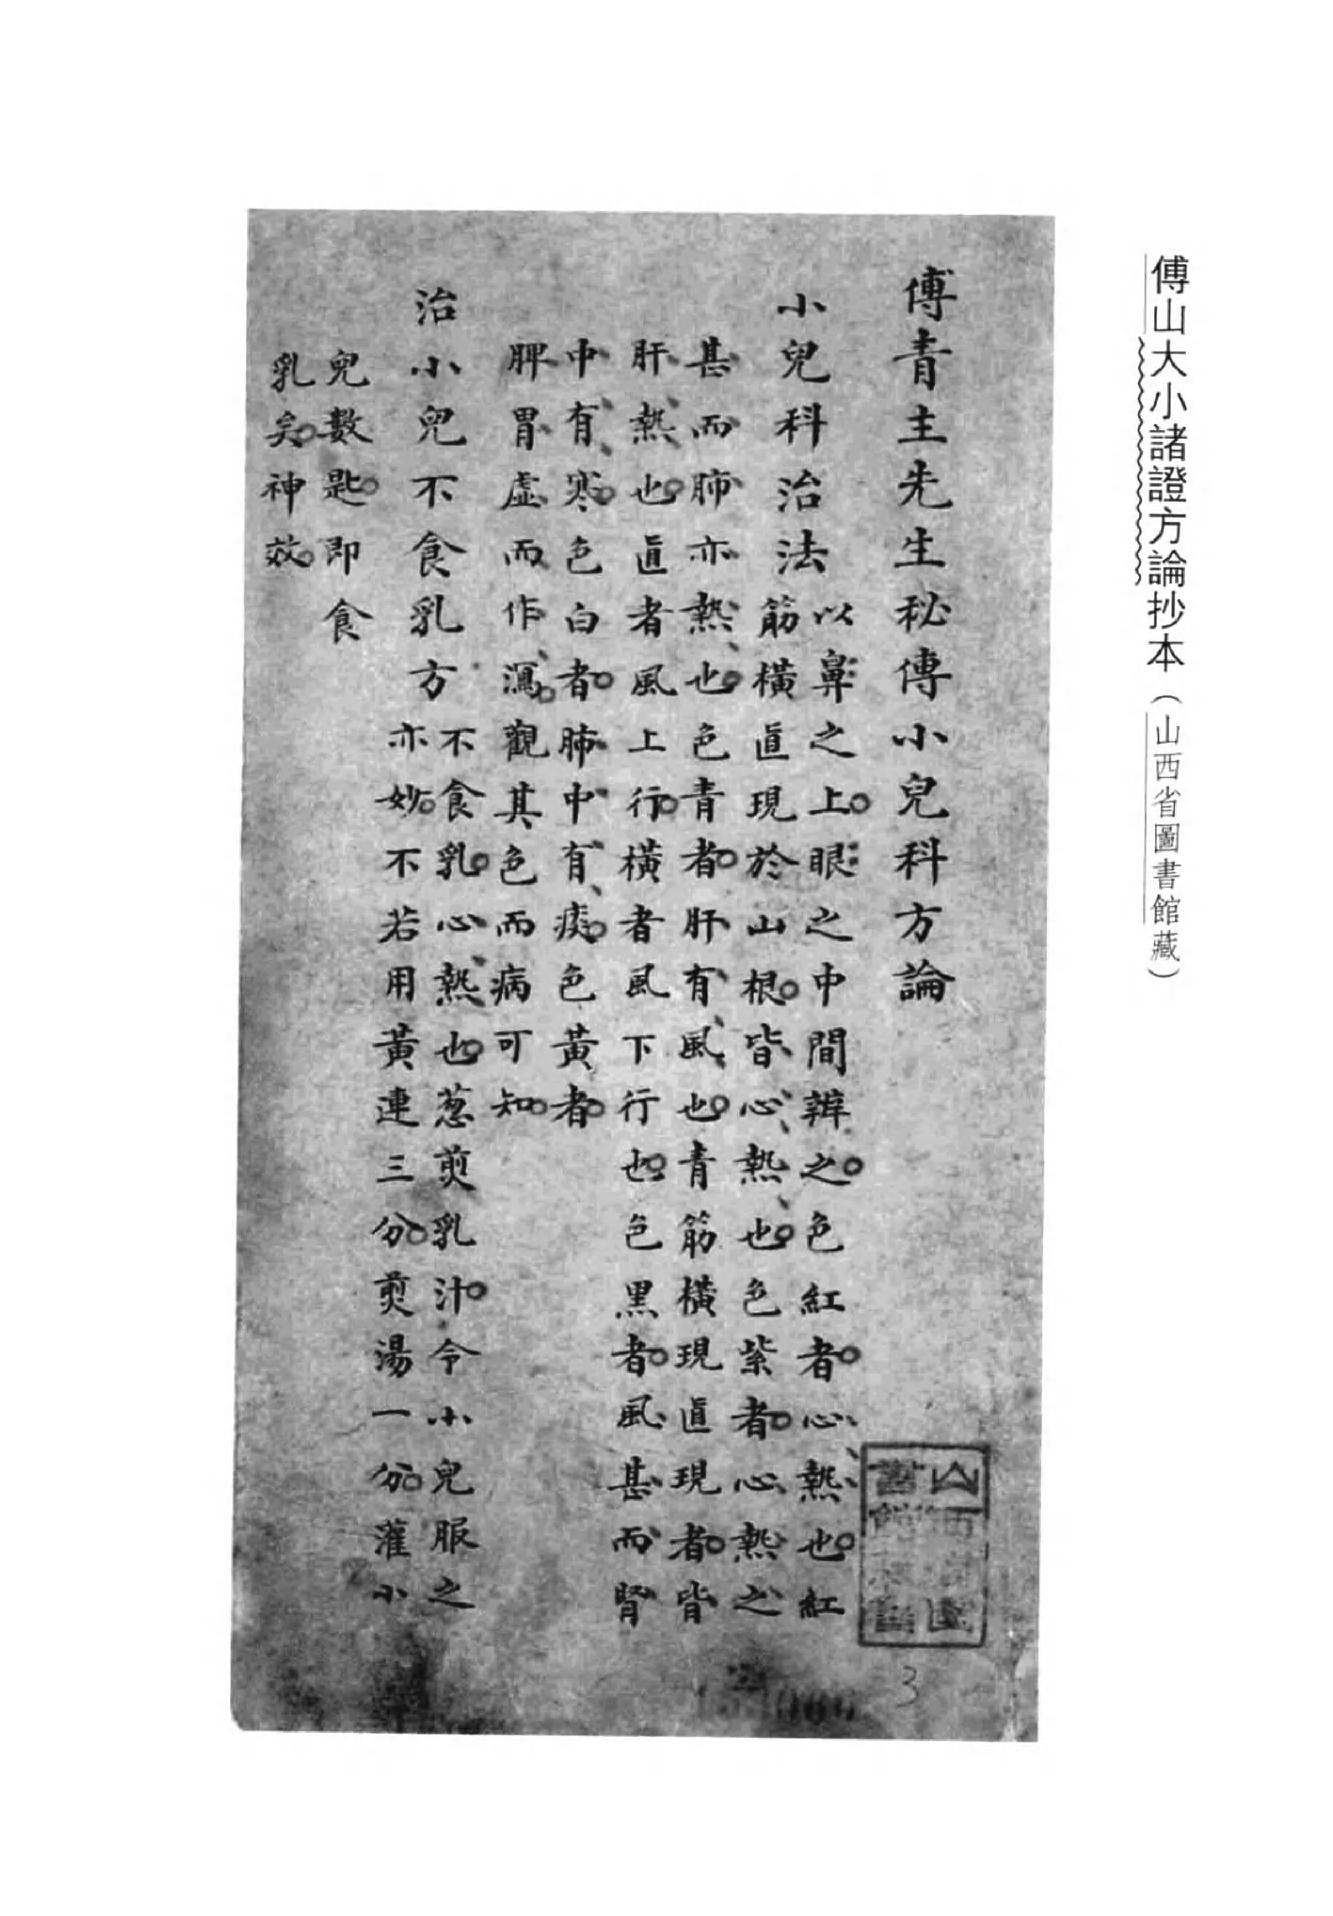 傅山大小諸證方論抄本（山西省圖書館藏）
傅青主先生秘傳小兒科方論
小兒科治法
以鼻之上眼之中間辨之色紅者心熱也紅
筋橫直現於山根皆心熱也色紫者心熱之
甚而肺亦熱也色青者肝有風也青筋橫現直現者皆
肝熱也直者風上行橫者風下行也色黑者風甚而腎
中有寒色白者肺中有痰色黃者
脾胃虛而作瀉觀其色而病可知
治小兒不食乳方
不食乳心熱也葱煎乳汁令小兒服之
亦妙不若用黃連三分煎湯一分灌小
兒數匙即食
乳矣神效
山西省圖
書館
3